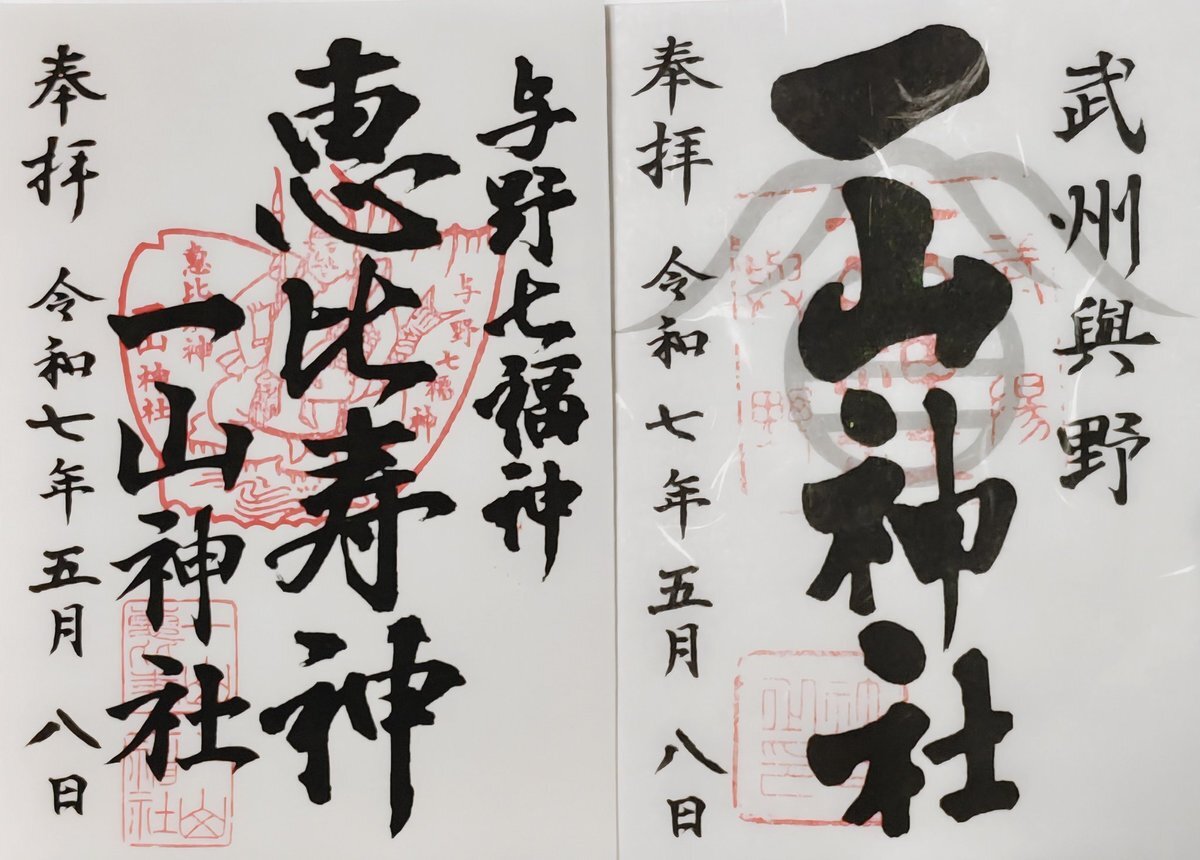 武州與野
一山神社
奉拝 令和七年五月八日
与野七福神
恵比寿神
一山神社
奉拝 令和七年五月八日
与野七福神
恵比寿神
一山神社